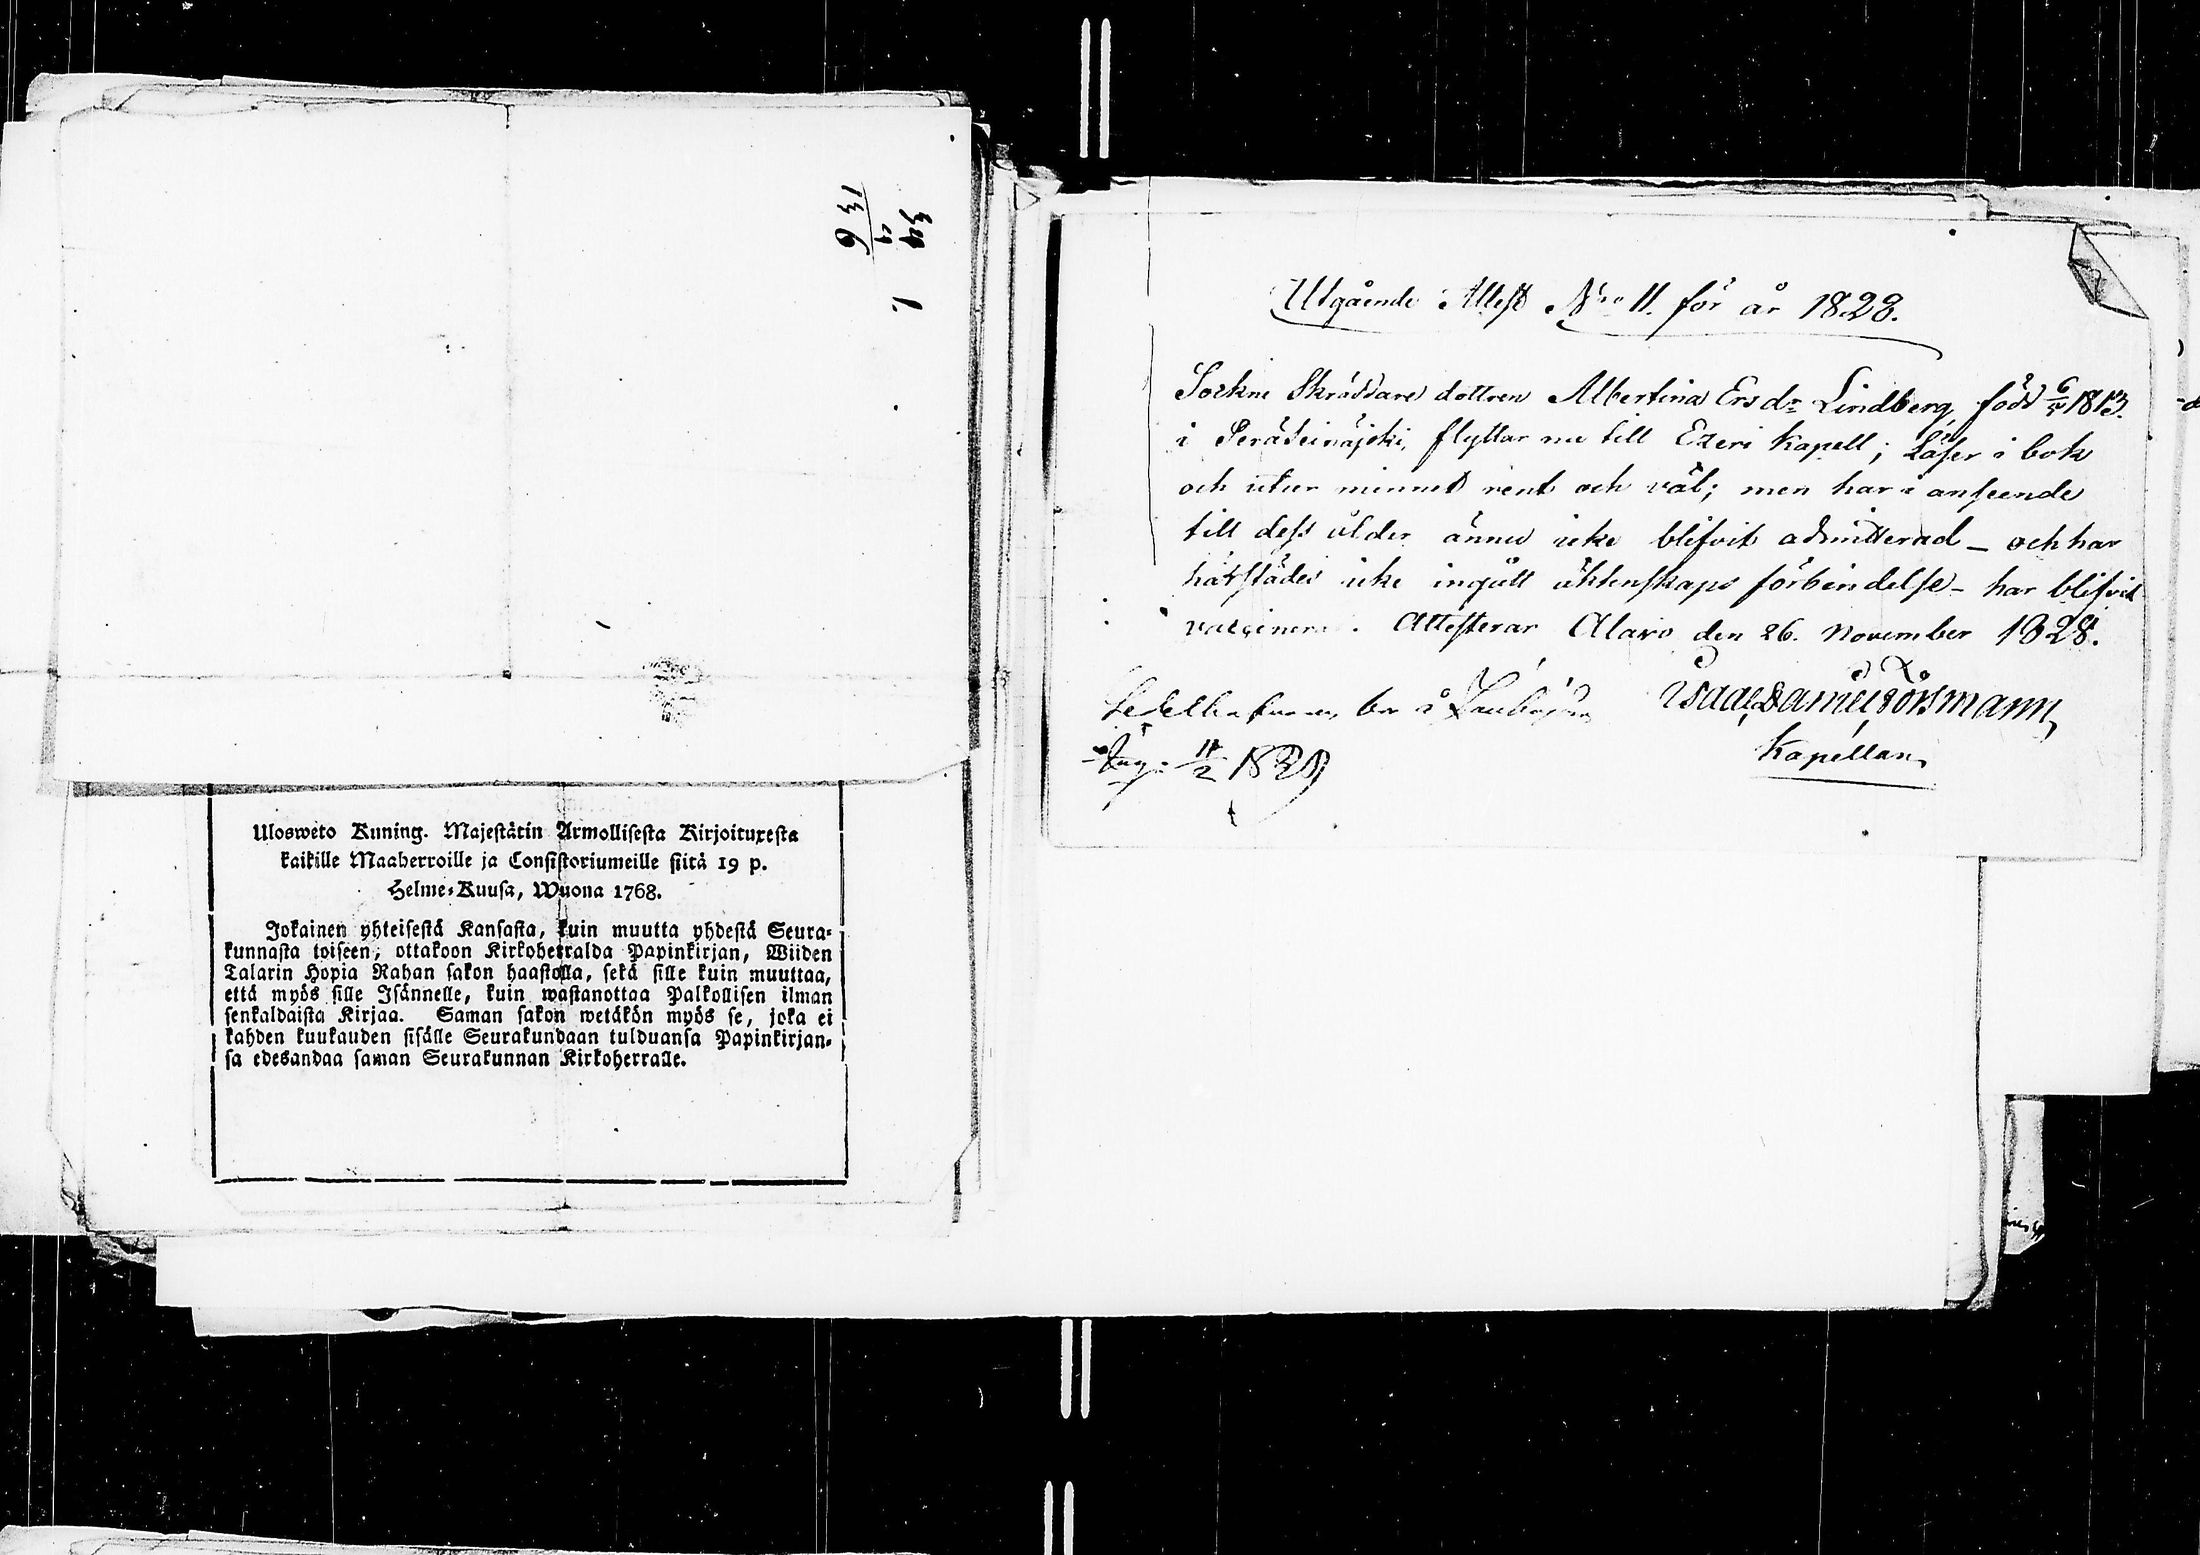 Ulosweto Kuning. Majestätin Armollisesta Kirjoituxesta
kaikille Maaherroille ja Consistoriumeille siitä 19 p.
Helme-Kuusa, Wuona 1768.
Jokainen yhteisestä Kansasta, kuin muutta yhdestä Seura-
kunnasta toiseen, ottakoon Kirkoherralda Papinkirjan, Wiiden
Talarin Hopia Rahan sakon haastolla, sekä sille kuin muuttaa,
että myös sille Isännelle, kuin wastanottaa Palkollisen ilman
senkaldaista Kirjaa. Saman sakon wetäkön myös se, joka ei
kahden kuukauden sisälle Seurakundaan tulduansa Papinkirjan-
sa edesandaa saman Seurakunnan Kirkoherralle.
Utgående Attest Nro 11. för år 1828.
Sockne Skräddare dottren Albertina Ersdr Lindberg, född 6/5 1813.
i Peräseinäjoki, flyttar nu till Etzeri Kapell; Läser i bok
och utur minnet rent och väl; men har i anseende
till dess ålder ännu icke blifvit admitterad – och har
härstädes icke ingått äktenskaps förbindelse – har blifvit
vaccinerad. Attesterar Alavo den 26. November 1828.
Isaac Daniel Forsmann,
Kapellan
11/2 1829